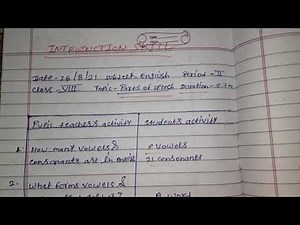 INTRODUCTION SKILL
Date - 26/8/21 subject - English Period - II
class - VIII Topic - Parts of speech Duration - 5-7 m
Pupil teacher's activity student's activity
1. How many vowels & 5 vowels
consonants are in 21 consonants
2. What forms vowels & A word